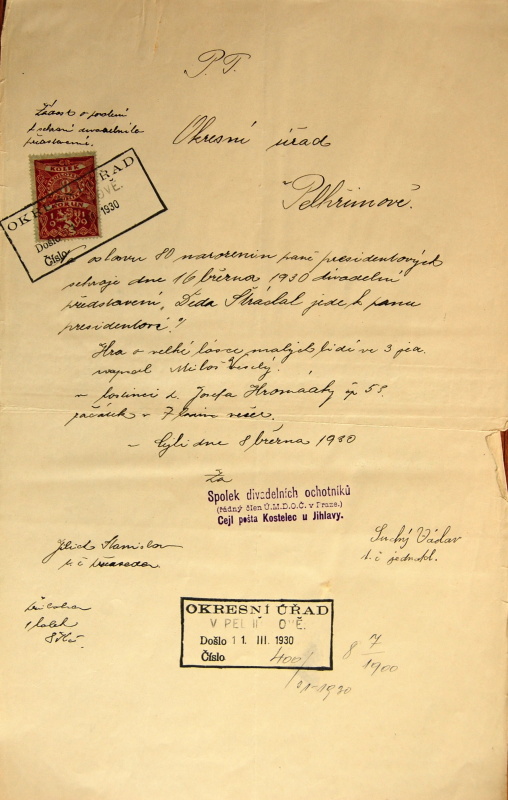 P. T.
Žádost o povolení
k sehrání divadelního
představení.
Okresní úřad
Pelhřimově.
KOLEK
OKRESNÍ ÚŘAD
OVĚ.
Došlo 1930
Číslo
oslavu 80 narozenin paně presidentových
sehraje dne 16 března 1930 divadelní
představení „Děda Stráclal jede k panu
presidentovi".
Hra o velké lásce malých lidí ve 3 jed.
napsal Miloš Veselý.
v hostinci p. Josefa Hromádky čp 53.
začátek v 7 hodin večer.
Cejli dne 8 března 1930
Za
Spolek divadelních ochotníků
(řádný člen Ú.M.D.O.Č. v Praze.)
Cejl pošta Kostelec u Jihlavy.
Stanislav
t. č. předseda
Suchý Václav
t. č. jednatel.
1 kolek
8 Kč
OKRESNÍ ÚŘAD
V PEL OVĚ.
Došlo 11. III. 1930
Číslo 400/
8 7/1900